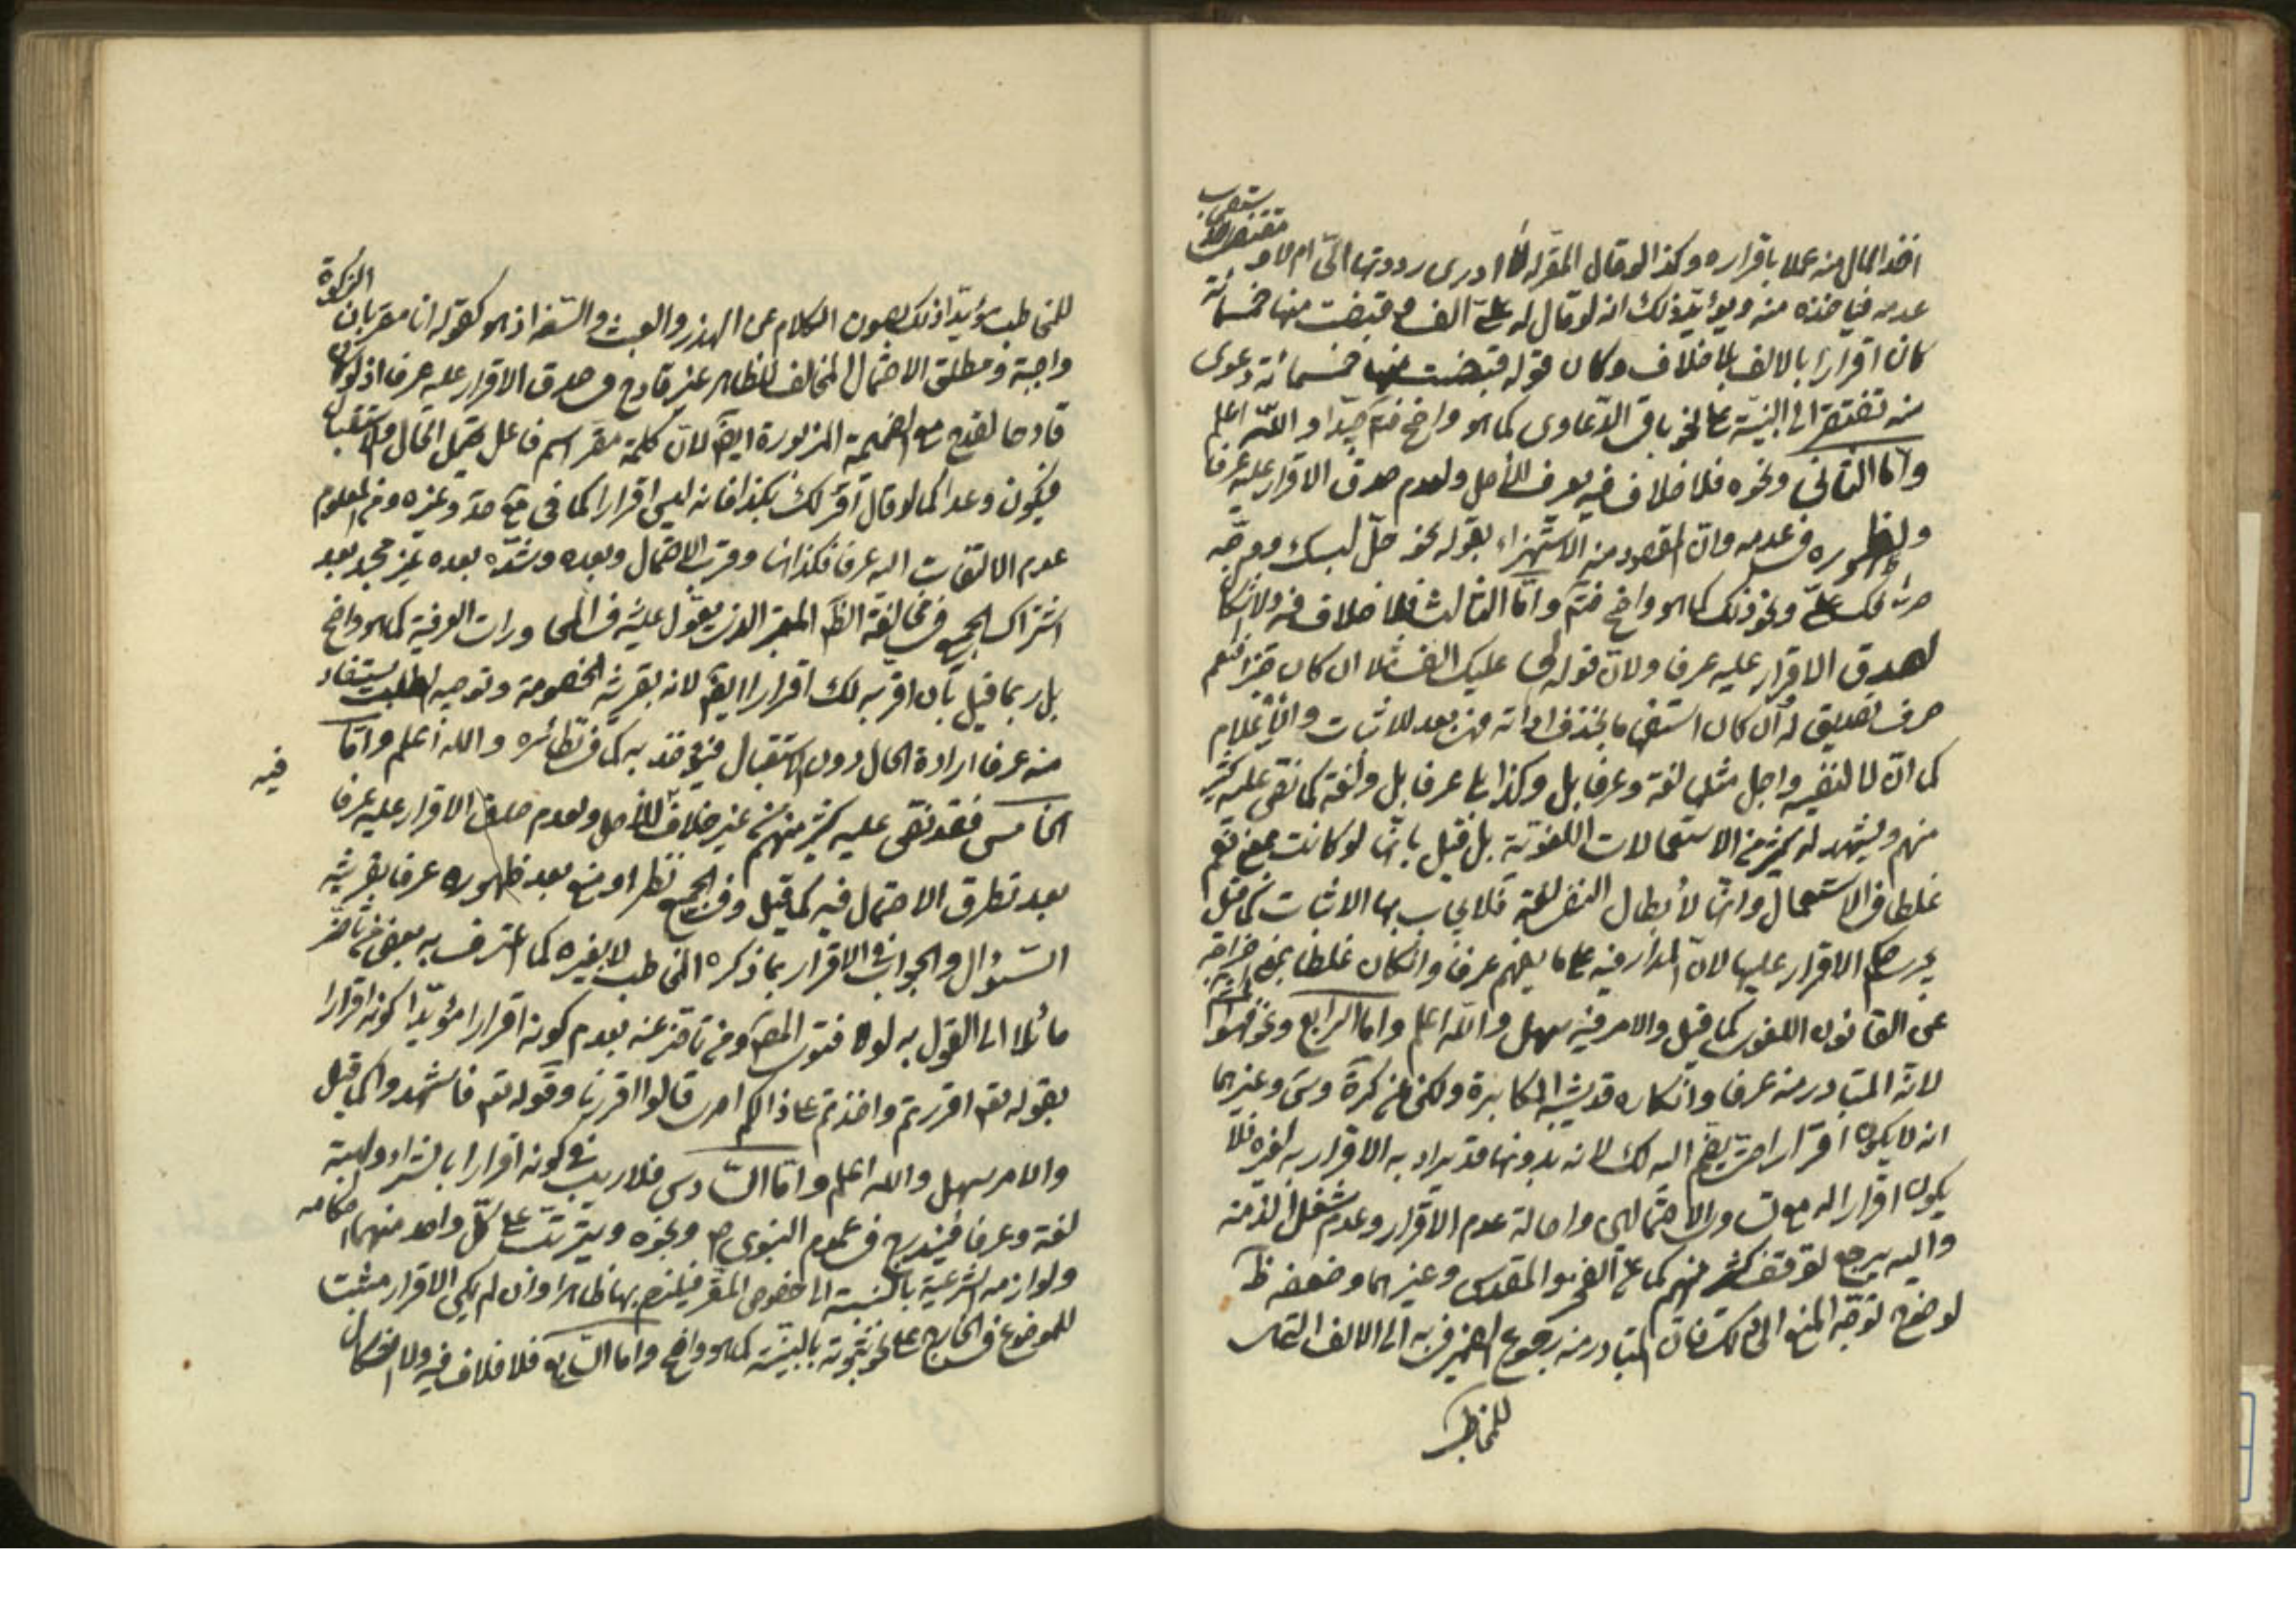 اخذ المال منه عملا باقراره وكذا لو قال المقر له لا ادرى رددتها الىّ ام لا و
يستصحب
عدمه فياخذه منه ويؤيّد ذلك انه لو قال له علىّ الف و قبضت منها خمسمائة
كان اقرارا بالالف بلا خلاف وكان قوله قبضت منها خمسمائة دعوى
منه تفتقر الى البيّنة على نحو باقى الدّعاوى كما هو واضح جدّا واللّه اعلم
وامّا الثانى ونحوه فلا خلاف فيه يعرف للأصل ولعدم صدق الاقرار عليه عرفا
ولظهوره فى عدمه وانّ المقصود منه الاستهزاء بقوله نحو حلّ
لك علىّ ونحو ذلك كما هو واضح وامّا الثالث فلا خلاف فيه ولا اشكال
لصدق الاقرار عليه عرفا ولانّ قوله لى عليك الف مثلا ان كان خبرا فنعم
حرف تصديق له وان كان استفهاما بحذف اداته فهى بعد للاثبات والأعلام
كما انّ لا لنفيه واجل مثلها لغة وعرفا بل وكذا بلى عرفا بل ولغة كما نصّ عليه كثير
منهم ويشهد له كثير من الاستعمالات اللغويّة بل قيل بانّها لو كانت بمعنى نعم
غلطا فى الاستعمال وانّها لأبطال النفى لغة فلا يجاب بها الاثبات كما قيل
يجرى حكم الاقرار عليها لانّ المدار فيه على ما يفهم عرفا وان كان غلطا بمعنى خارجه
عن القانون اللغوى كما قيل والامر فيه سهل واللّه اعلم وامّا الرابع ونحوه
لانّه المتبادر منه عرفا وانكاره قد يشبه المكابرة ولكن عن كرة وس وغيرهما
انه لا يكون اقرارا حتى يضم اليه لك لانه بدونها قد يراد به الاقرار به لغيره فلا
يكون اقرارا له مع والاحتمال واصالة عدم الاقرار وعدم شغل الذمة
واليه يرجع توقف كثير منهم كما عن الفخر والمقدس وغيرهما وضعفه ظ
لوضوح توجّه المنع الى ذلك فانّ المتبادر منه رجوع الضمير فى به الى الالف التى
للمخاطب
الزكوة
للمخاطب مؤيّدا ذلك بصون الكلام عن الهذر والعبث والسّفه اذ هو كقوله انا مقر بان
واجبة ومطلق الاحتمال المخالف للظاهر غير قادح فى صدق الاقرار عليه عرفا اذ لو كان
قادحا لقدح مع الضميمة المزبورة ايضا لانّ كلمة مقر اسم فاعل يحتمل الحال والاستقبال
فيكون وعدا كما لو قال اقر لك بكذا فانه ليس اقرارا كما فى وغيره ومن المعلوم
عدم الالتفات اليه عرفا فكذا هنا وقرب الاحتمال وبعده وشدّة بعده غير مجد بعد
اشتراك الجميع فى مخالفة الظ المعتبر الذى يعوّل عليه فى المحاورات العرفية كما هو واضح
بل ربما قيل بأن اقر به لك اقرارا ايضا لانه بقرينة الخصومة وتوجيه الطلب يستفاد
منه عرفا ارادة الحال دون الاستقبال فيؤخذ به كما فى نظائره والله اعلم وامّا
الخامس فقد نصّ عليه كثير منهم من غير خلاف للأصل ولعدم صدق الاقرار عليه عرفا
فيه
بعد تطرق الاحتمال فيه كما قيل وفى الجميع نظر او منع بعد ظهوره عرفا بقرينة
السّؤال والجواب فى الاقرار بما ذكره المخاطب لا بغيره كما اعترف به بعض من تاخر
مائلا الى القول به لولا فتوى المصنف ومن تاخر عنه بعدم كونه اقرارا مؤيّدا كونه اقرارا
بقوله تعالى اقررتم واخذتم على ذلكم اصرى قالوا اقررنا وقوله تعالى فاشهدوا كما قيل
والامر سهل والله اعلم وامّا السّادس فلا ريب فى كونه اقرارا بالشراء والهبة
لغة وعرفا فيندرج فى عموم النبوى ص ونحوه ويترتّب على كلّ واحد منهما احكامه
ولوازمه الشرعية بالنسبة الى خصوص المقر فيلزم بها ظاهرا وان لم يكن الاقرار مثبت
للموضوع فى الخارج على نحو ثبوته بالبيّنة كما هو واضح وامّا السّابع فلا خلاف فيه ولا اشكال